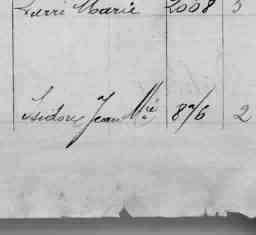 Pierri Marie 2008 3
Isidore Jean Mie 876 2